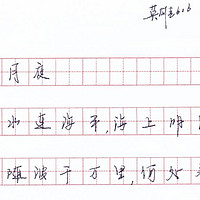 月夜
水连海平,海上明
随波千万里,何处